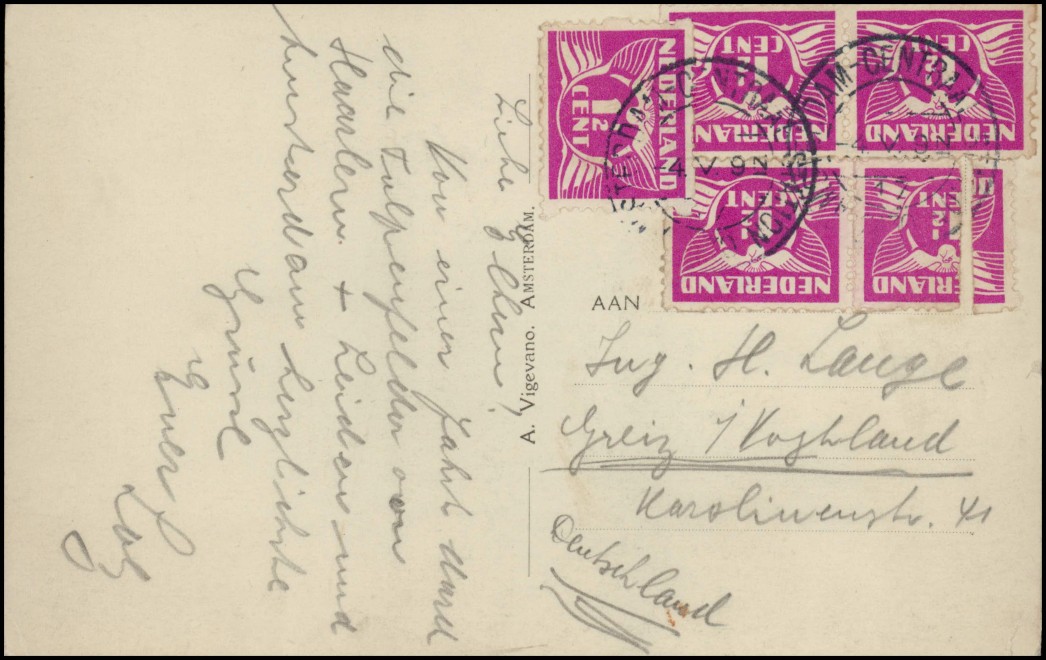 Liebe Eltern!
Von einer Fahrt durch
die Tulpenfelder von
Haarlem + Leiden und
Amsterdam herzlichste
Grüße
Euer
A. Vigevano. AMSTERDAM.
NEDERLAND
1½
CENT
NEDERLAN
CENT
NEDERLAND
CENT
NEDERLAND
1½
CENT
NEDERLAND
1½
CENT
AMSTERDAM-CENTRAAL STATION
4.V.
AAN
Ing. H. Lange
Greiz i/Vogtland
Karolinenstr. 41
Deutschland